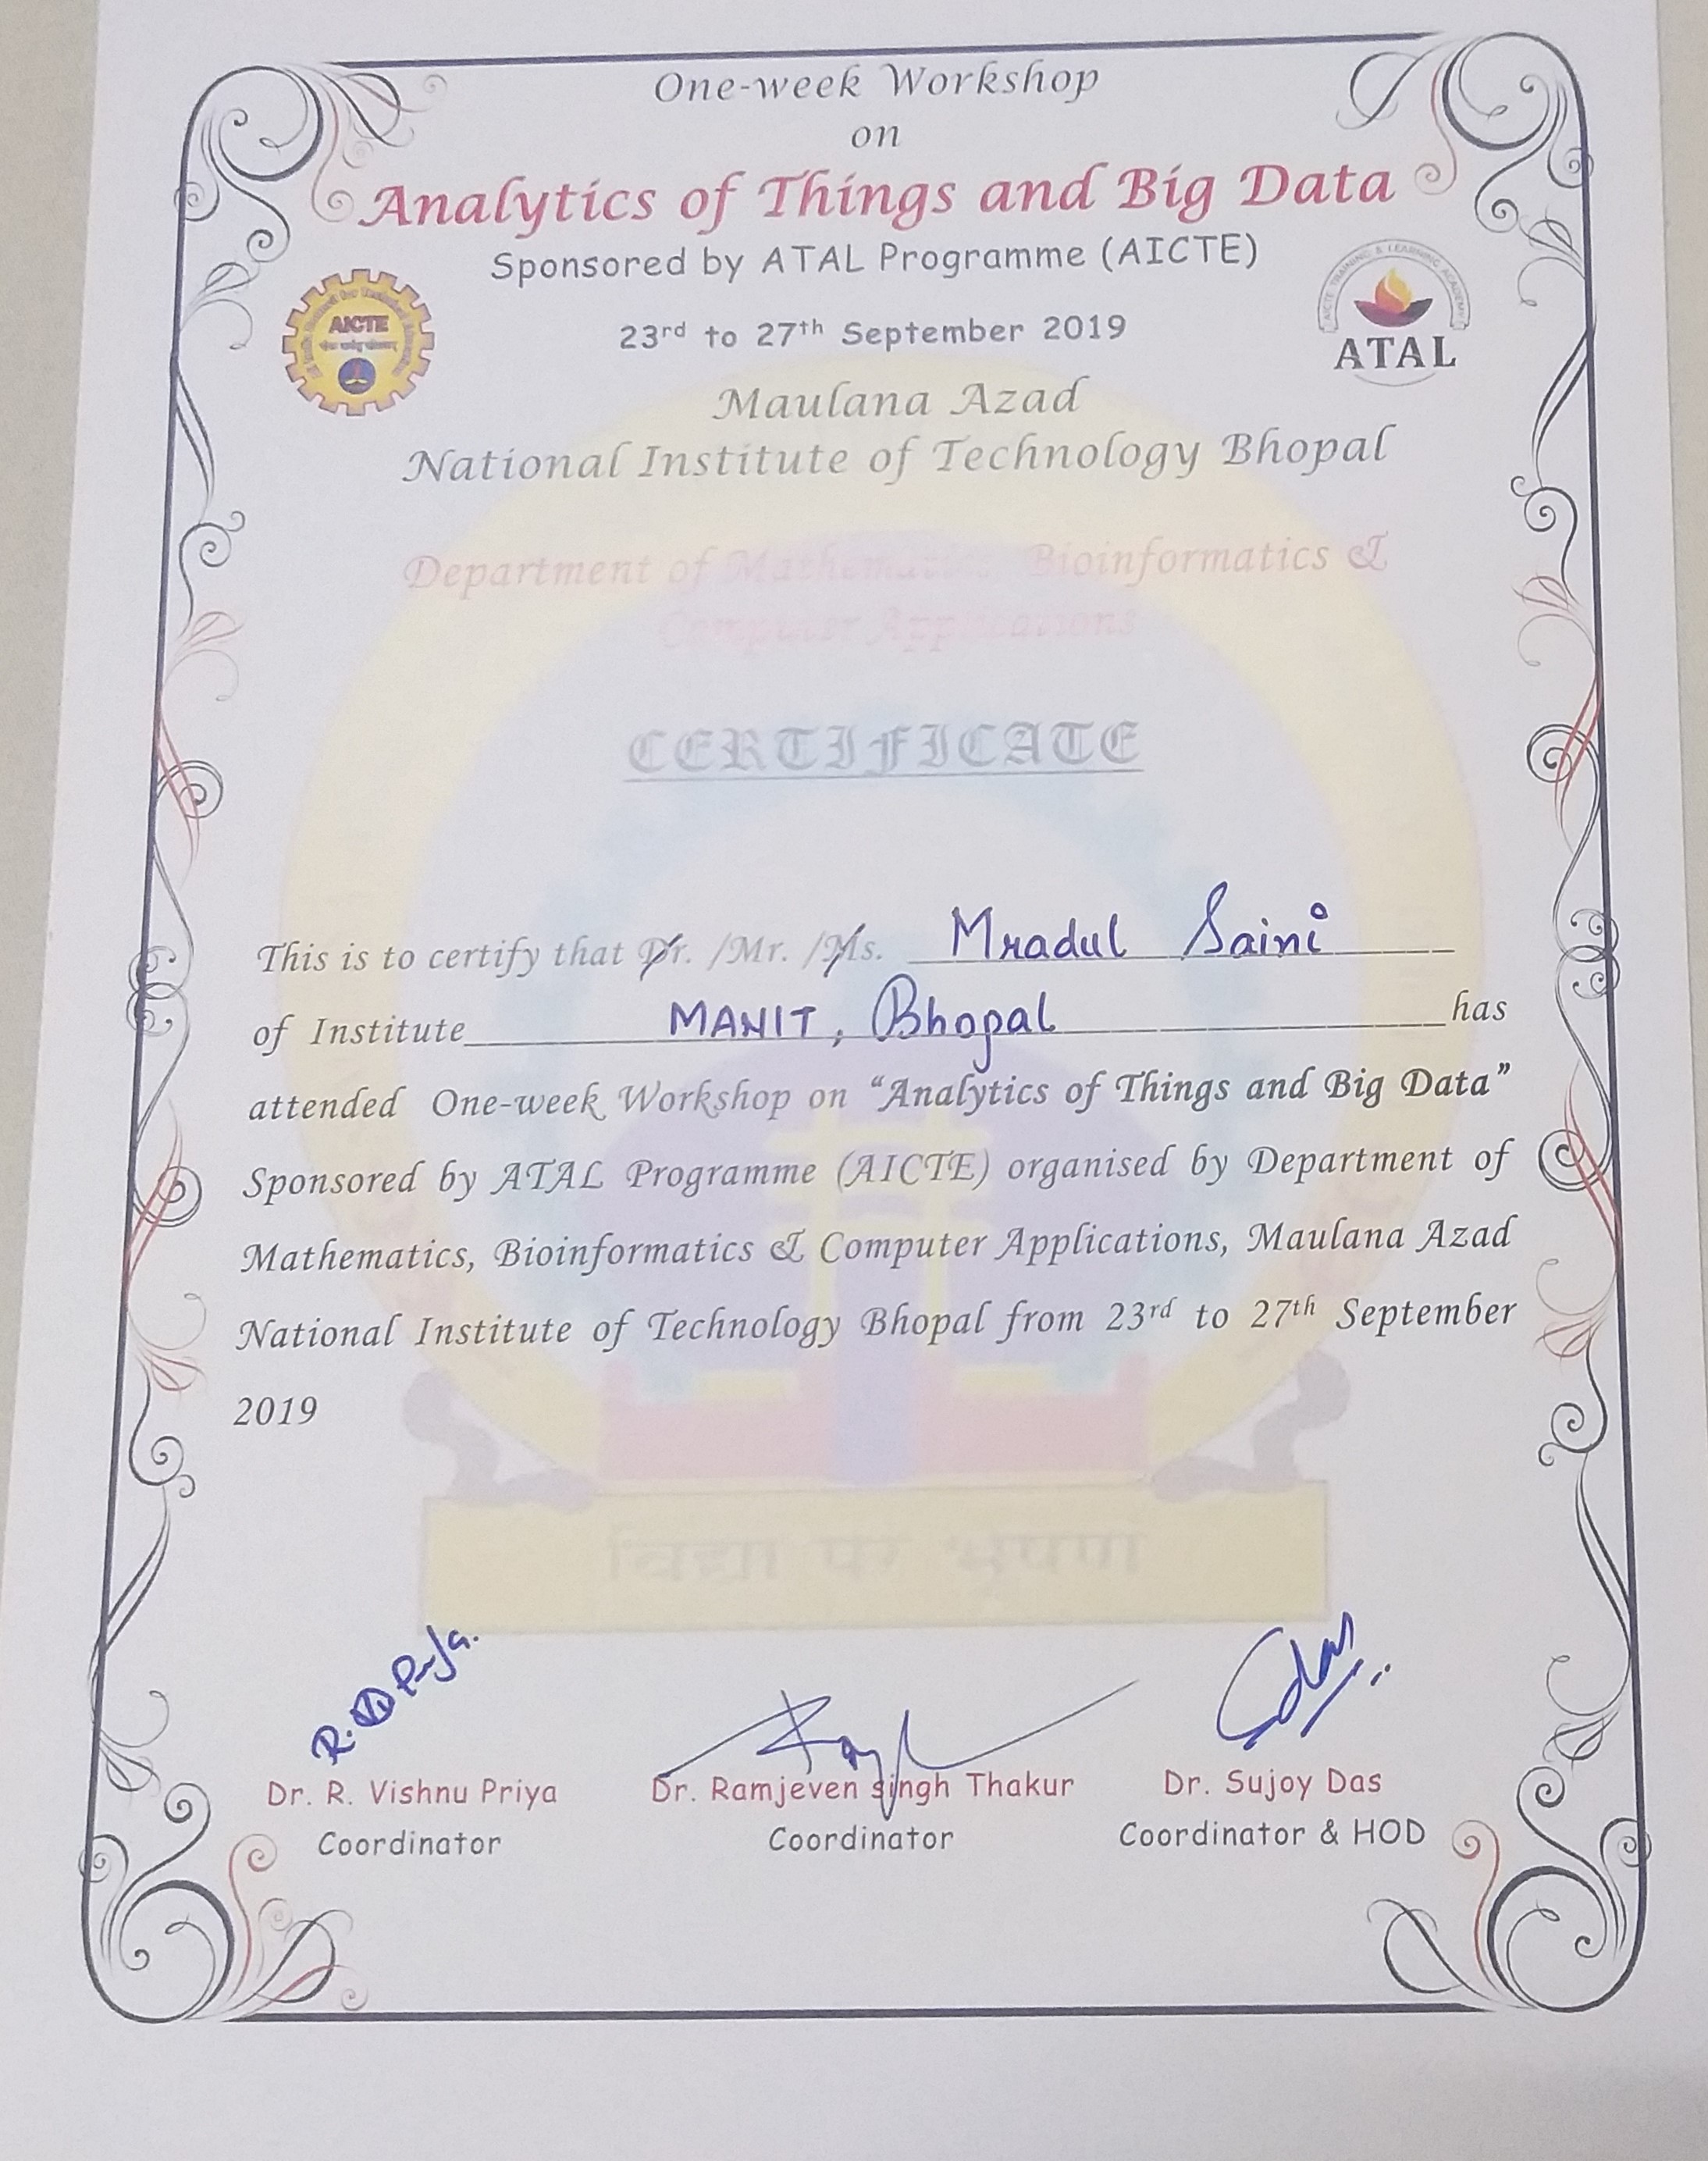 One-week Workshop
on
Analytics of Things and Big Data
Sponsored by ATAL Programme (AICTE)
AICTE
AICTE TRAINING & LEARNING ACADEMY
ATAL
23rd to 27th September 2019
Maulana Azad
National Institute of Technology Bhopal
Department of Mathematics, Bioinformatics &
Computer Applications
CERTIFICATE
This is to certify that Dr. /Mr. /Ms. Mradul Saini
of Institute MANIT, Bhopal has
attended One-week Workshop on “Analytics of Things and Big Data”
Sponsored by ATAL Programme (AICTE) organised by Department of
Mathematics, Bioinformatics & Computer Applications, Maulana Azad
National Institute of Technology Bhopal from 23rd to 27th September
2019
विद्या परं भूषणं
Dr. R. Vishnu Priya
Coordinator
Dr. Ramjeven singh Thakur
Coordinator
Dr. Sujoy Das
Coordinator & HOD